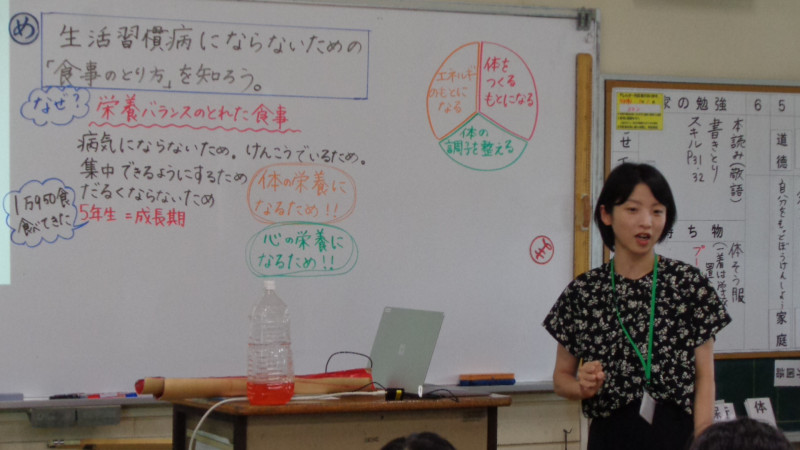 め
生活習慣病にならないための
「食事のとり方」を知ろう。
なぜ？
栄養バランスのとれた食事
病気にならないため。けんこうでいるため。
集中できるようにするため
だるくならないため
5年生=成長期
1万950食
食べてきた
体の栄養に
なるため!!
心の栄養に
なるため!!
エネルギー
のもとに
なる
体を
つくる
もとになる
体の
調子を整える
家の勉強
本読み(敬語)
書きとり
スキルP31.32
持ち物
体そう服
6
5
道徳
家庭
体